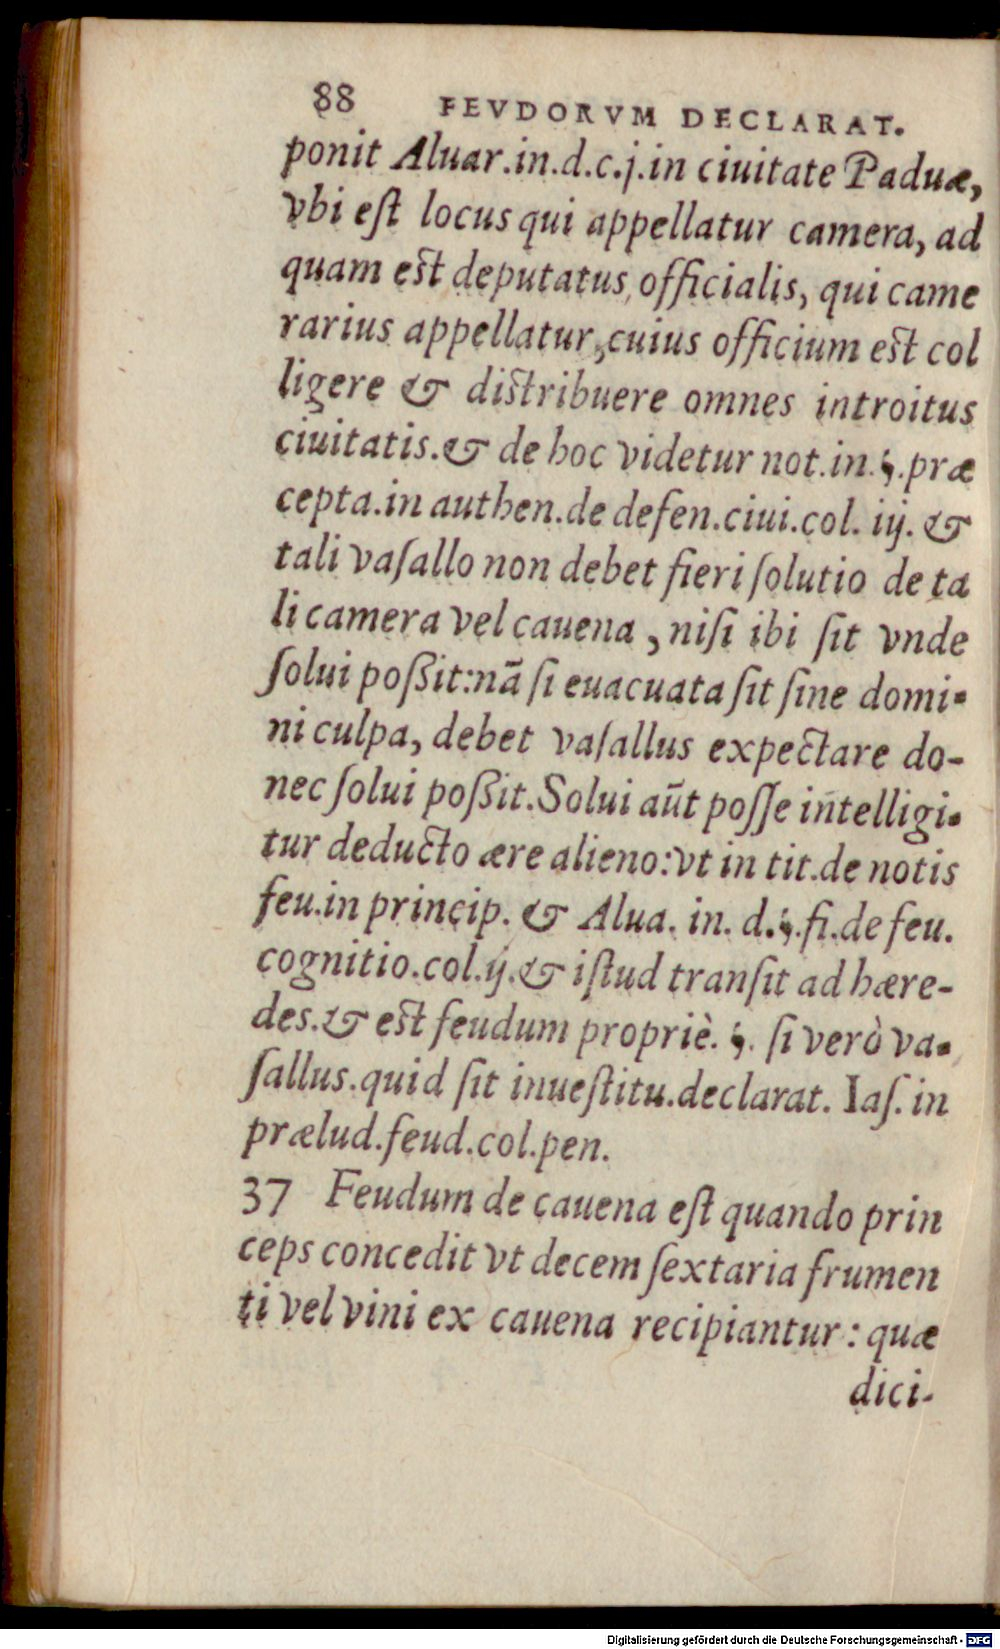 88 FEVDORVM DECLARAT.
ponit Aluar.in.d.c.j.in ciuitate Paduæ,
vbi eſt locus qui appellatur camera, ad
quam est deputatus officialis, qui came
rarius appellatur, cuius officium est col
ligere & distribuere omnes introitus
ciuitatis.& de hoc videtur not.in.§.præ
cepta.in authen.de defen.ciui.col. iij. &
tali vaſallo non debet fieri ſolutio de ta
li camera vel cauena, niſi ibi ſit vnde
ſolui poßit:nã ſi euacuata ſit ſine domi-
ni culpa, debet vaſallus expectare do-
nec ſolui poßit.Solui aũt poſſe intelligi-
tur deducto ære alieno:vt in tit.de notis
feu.in princip. & Alua. in. d.§.fi.de feu.
cognitio.col.ij.& iſtud tranſit ad hære-
des.& est feudum propriè. §. ſi verò va-
ſallus.quid ſit inueſtitu.declarat. Iaſ. in
prælud.feud.col.pen.
37 Feudum de cauena eſt quando prin
ceps concedit vt decem ſextaria frumen
ti vel vini ex cauena recipiantur: quæ
dici-
Digitalisierung gefördert durch die Deutsche Forschungsgemeinschaft - DFG